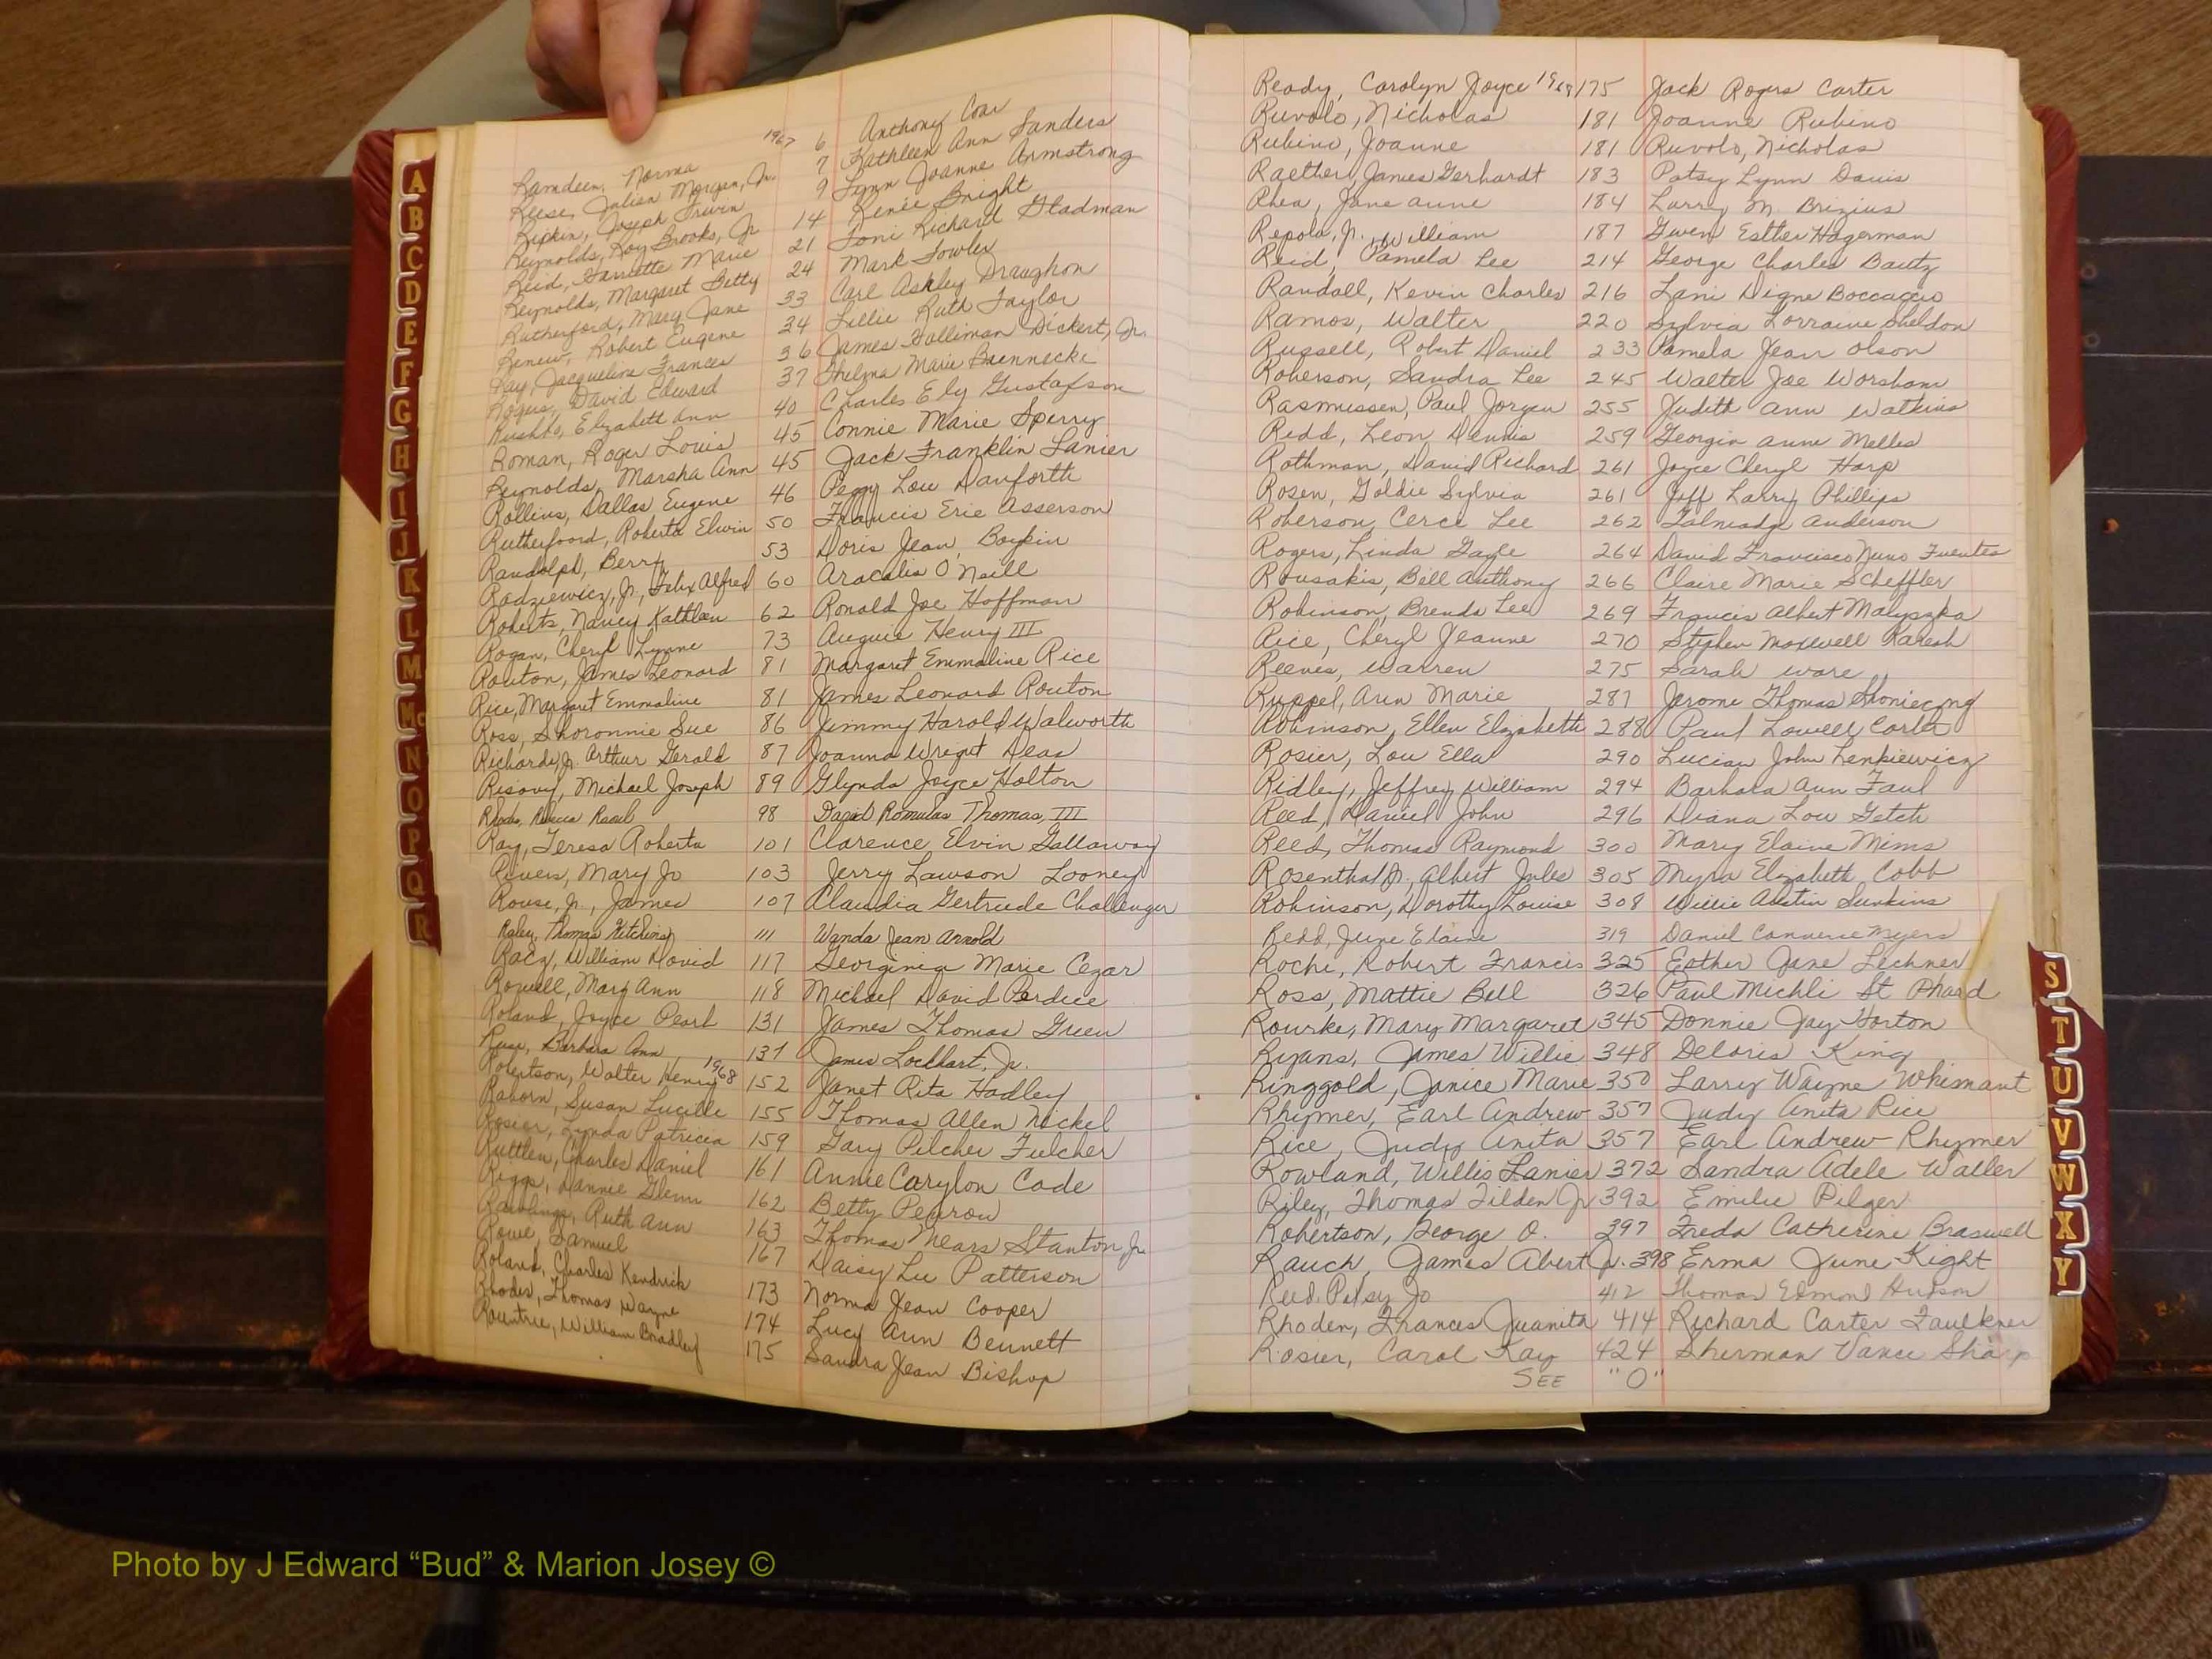 Ramdeen, Norma 1967 6 Anthony Coar
Reese, Julian Morgan, Jr. 7 Kathleen Ann Sanders
Ripkin, Joseph Irwin 9 Lynn Joanne Armstrong
Reynolds, Roy Brooks, Jr. 14 Renée Bright
Reid, Harriette Marie 21 Toni Richard Stadman
Reynolds, Margaret Betty 24 Mark Fowler
Rutherford, Mary Jane 33 Carl Ashley Draughon
Renew, Robert Eugene 34 Lillie Ruth Taylor
Ray, Jacqueline Frances 36 James Halliman Dickert, Jr.
Rogers, David Edward 37 Thelma Marie Brennecke
Elizabeth Ann 40 Charles Ely Gustafson
Roman, Roger Louis 45 Connie Marie Sperry
Reynolds, Marsha Ann 45 Jack Franklin Lanier
Rollins, Dallas Eugene 46 Peggy Lou Danforth
Rutherfoord, Roberta Elwin 50 Francis Eric Asserson
Randolph, Berry 53 Doris Jean Boykin
Radziewicz, Jr., Felix Alfred 60 Aracelis O'Neill
Roberts, Nancy Kathleen 62 Ronald Joe Hoffman
Rogan, Cheryl Lynne 73 Auguie Henry III
Routon, James Leonard 81 Margaret Emmaline Rice
Rice, Margaret Emmaline 81 James Leonard Routon
Ross, Shoronnie Sue 86 Jimmy Harold Walworth
Richards, Jr. Arthur Gerald 87 Joanna Wragat Dead
Risavy, Michael Joseph 89 Glynda Joyce Holton
98 David Romulas Thomas, III
Ray, Teresa Roberta 101 Clarence Elvin Gallaway
Rivers, Mary Jo 103 Jerry Lawson Looney
Rouse, Jr., James 107 Claudia Gertrude Challenger
Raley, Thomas Hitchins 111 Wanda Jean Arnold
Racz, William David 117 Georginia Marie Cezar
Rowell, Mary Ann 118 Michael David Perdice
Roland, Joyce Pearl 131 James Thomas Green
Ruse, Barbara Ann 137 James Lockhart, Jr.
Robertson, Walter Henry 1968 152 Janet Rita Hadley
Raborn, Susan Lucille 155 Thomas Allen Nickel
Rosier, Lynda Patricia 159 Gary Pilcher Fulcher
Ruttlen, Charles Daniel 161 Annie Carylon Cade
Riggs, Dannie Glenn 162 Betty Penrow
Rawlings, Ruth Ann 163 Thomas Mears Stanton, Jr.
Rowe, Samuel 167 Daisy Lee Patterson
Roland, Charles Kendrick 173 Norma Jean Cooper
Rhodes, Thomas Wayne 174 Lucy Ann Bennett
Rountree, William Bradley 175 Sandra Jean Bishop
Ready, Carolyn Joyce 1968 175 Jack Rogers Carter
Ruvolo, Nicholas 181 Joanne Rubino
Rubino, Joanne 181 Ruvolo, Nicholas
Raether, James Gerhardt 183 Patsy Lynn Davis
Rhea, Jane Anne 184 Larry M. Brizius
Repola, Jr., William 187 Gwen Esther Hagerman
Reid, Pamela Lee 214 George Charles Bautz
Randall, Kevin Charles 216 Lani Digne Boccaccio
Ramos, Walter 220 Sylvia Lorraine Sheldon
Russell, Robert Daniel 233 Pamela Jean Olson
Roherson, Sandra Lee 245 Walter Joe Worsham
Rasmussen, Paul Jorgen 255 Judith Ann Watkins
Redd, Leon Dennis 259 Georgia Anne Melles
Rothman, David Richard 261 Joyce Cheryl Harp
Rosen, Goldie Sylvia 261 Jeff Larry Phillips
Roberson, Cerce Lee 262 Talmadge Anderson
Rogers, Linda Gayle 264 David Francisco Nuno Fuentes
Rousakis, Bill Anthony 266 Claire Marie Scheffler
Robinson, Brenda Lee 269 Francis Albert Malyszka
Rice, Cheryl Jeanne 270 Stephen Maxwell Karesh
Reeves, Warren 275 Sarah Ware
Ruppel, Ann Marie 287 Jerome Thomas
Robinson, Ellen Elizabeth 288 Paul Lowell Carter
Rosier, Lou Ella 290 Lucian John Lenkiewicz
Ridley, Jeffrey William 294 Barbara Ann Faul
Reed, Daniel John 296 Diana Lou Getch
Reed, Thomas Raymond 300 Mary Elaine Mims
Rosenthal Jr., Albert Jules 305 Myra Elizabeth Cobb
Robinson, Dorothy Louise 308 Willie Austin Sunkins
Redd, June Elaine 319 Daniel Converse Myers
Roche, Robert Francis 325 Esther Jane Lechner
Ross, Mattie Bell 326 Paul Michli St Phard
Rourke, Mary Margaret 345 Donnie Jay Horton
Ryans, James Willie 348 Deloris King
Ringgold, Janice Marie 350 Larry Wayne Whismant
Rhymer, Earl Andrew 357 Judy Anita Rice
Rice, Judy Anita 357 Earl Andrew Rhymer
Rowland, Willis Lanier 372 Sandra Adele Waller
Riley, Thomas Tilden Jr 392 Emilie Pilger
Robertson, George O. 397 Freda Catherine Braswell
Rauch, James Abert Jr. 398 Erma June Kight
Reed, Patsy Jo 412 Thomas Edmond Hudson
Rhoden, Frances Juanita 414 Richard Carter Faulkner
Rosier, Carol Kay 424 Sherman Vance Sharp
SEE "O"
A
B
C
D
E
F
G
H
I
J
K
L
M
Mc
N
O
P
Q
R
S
T
U
V
W
X
Y
Photo by J Edward “Bud” & Marion Josey ©